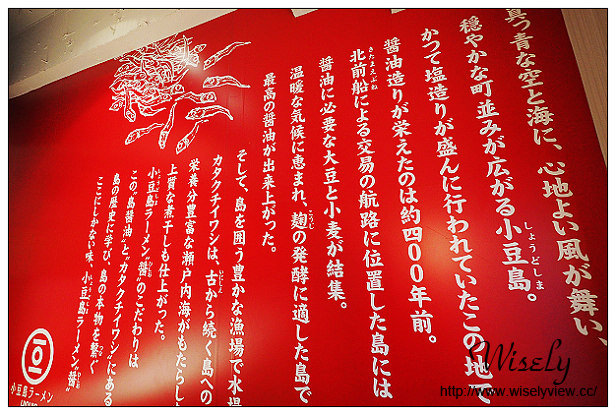 真っ青な空と海に、心地よい風が舞い、
穏やかな町並みが広がる小豆島。
しょうどしま
かつて塩造りが盛んに行われていたこの地で
醤油造りが栄えたのは約四〇〇年前。
北前船による交易の航路に位置した島には
きたまえぶね
醤油に必要な大豆と小麦が結集。
温暖な気候に恵まれ、麹の発酵に適した島で
こうじ
最高の醤油が出来上がった。
そして、島を囲う豊かな漁場で水揚
カタクチイワシは、古から続く島への
栄養分豊富な瀬戸内海がもたらし
上質な煮干しも仕上がった。
小豆島ラーメン"醤"のこだわりは
この"島醤油"と"カタクチイワシ"にある
島の歴史に学び、島の本物を繋ぐ
ここにしかない味、小豆島ラーメン"醤"
小豆島ラーメン
Wisely
http://www.wiselyview.cc/